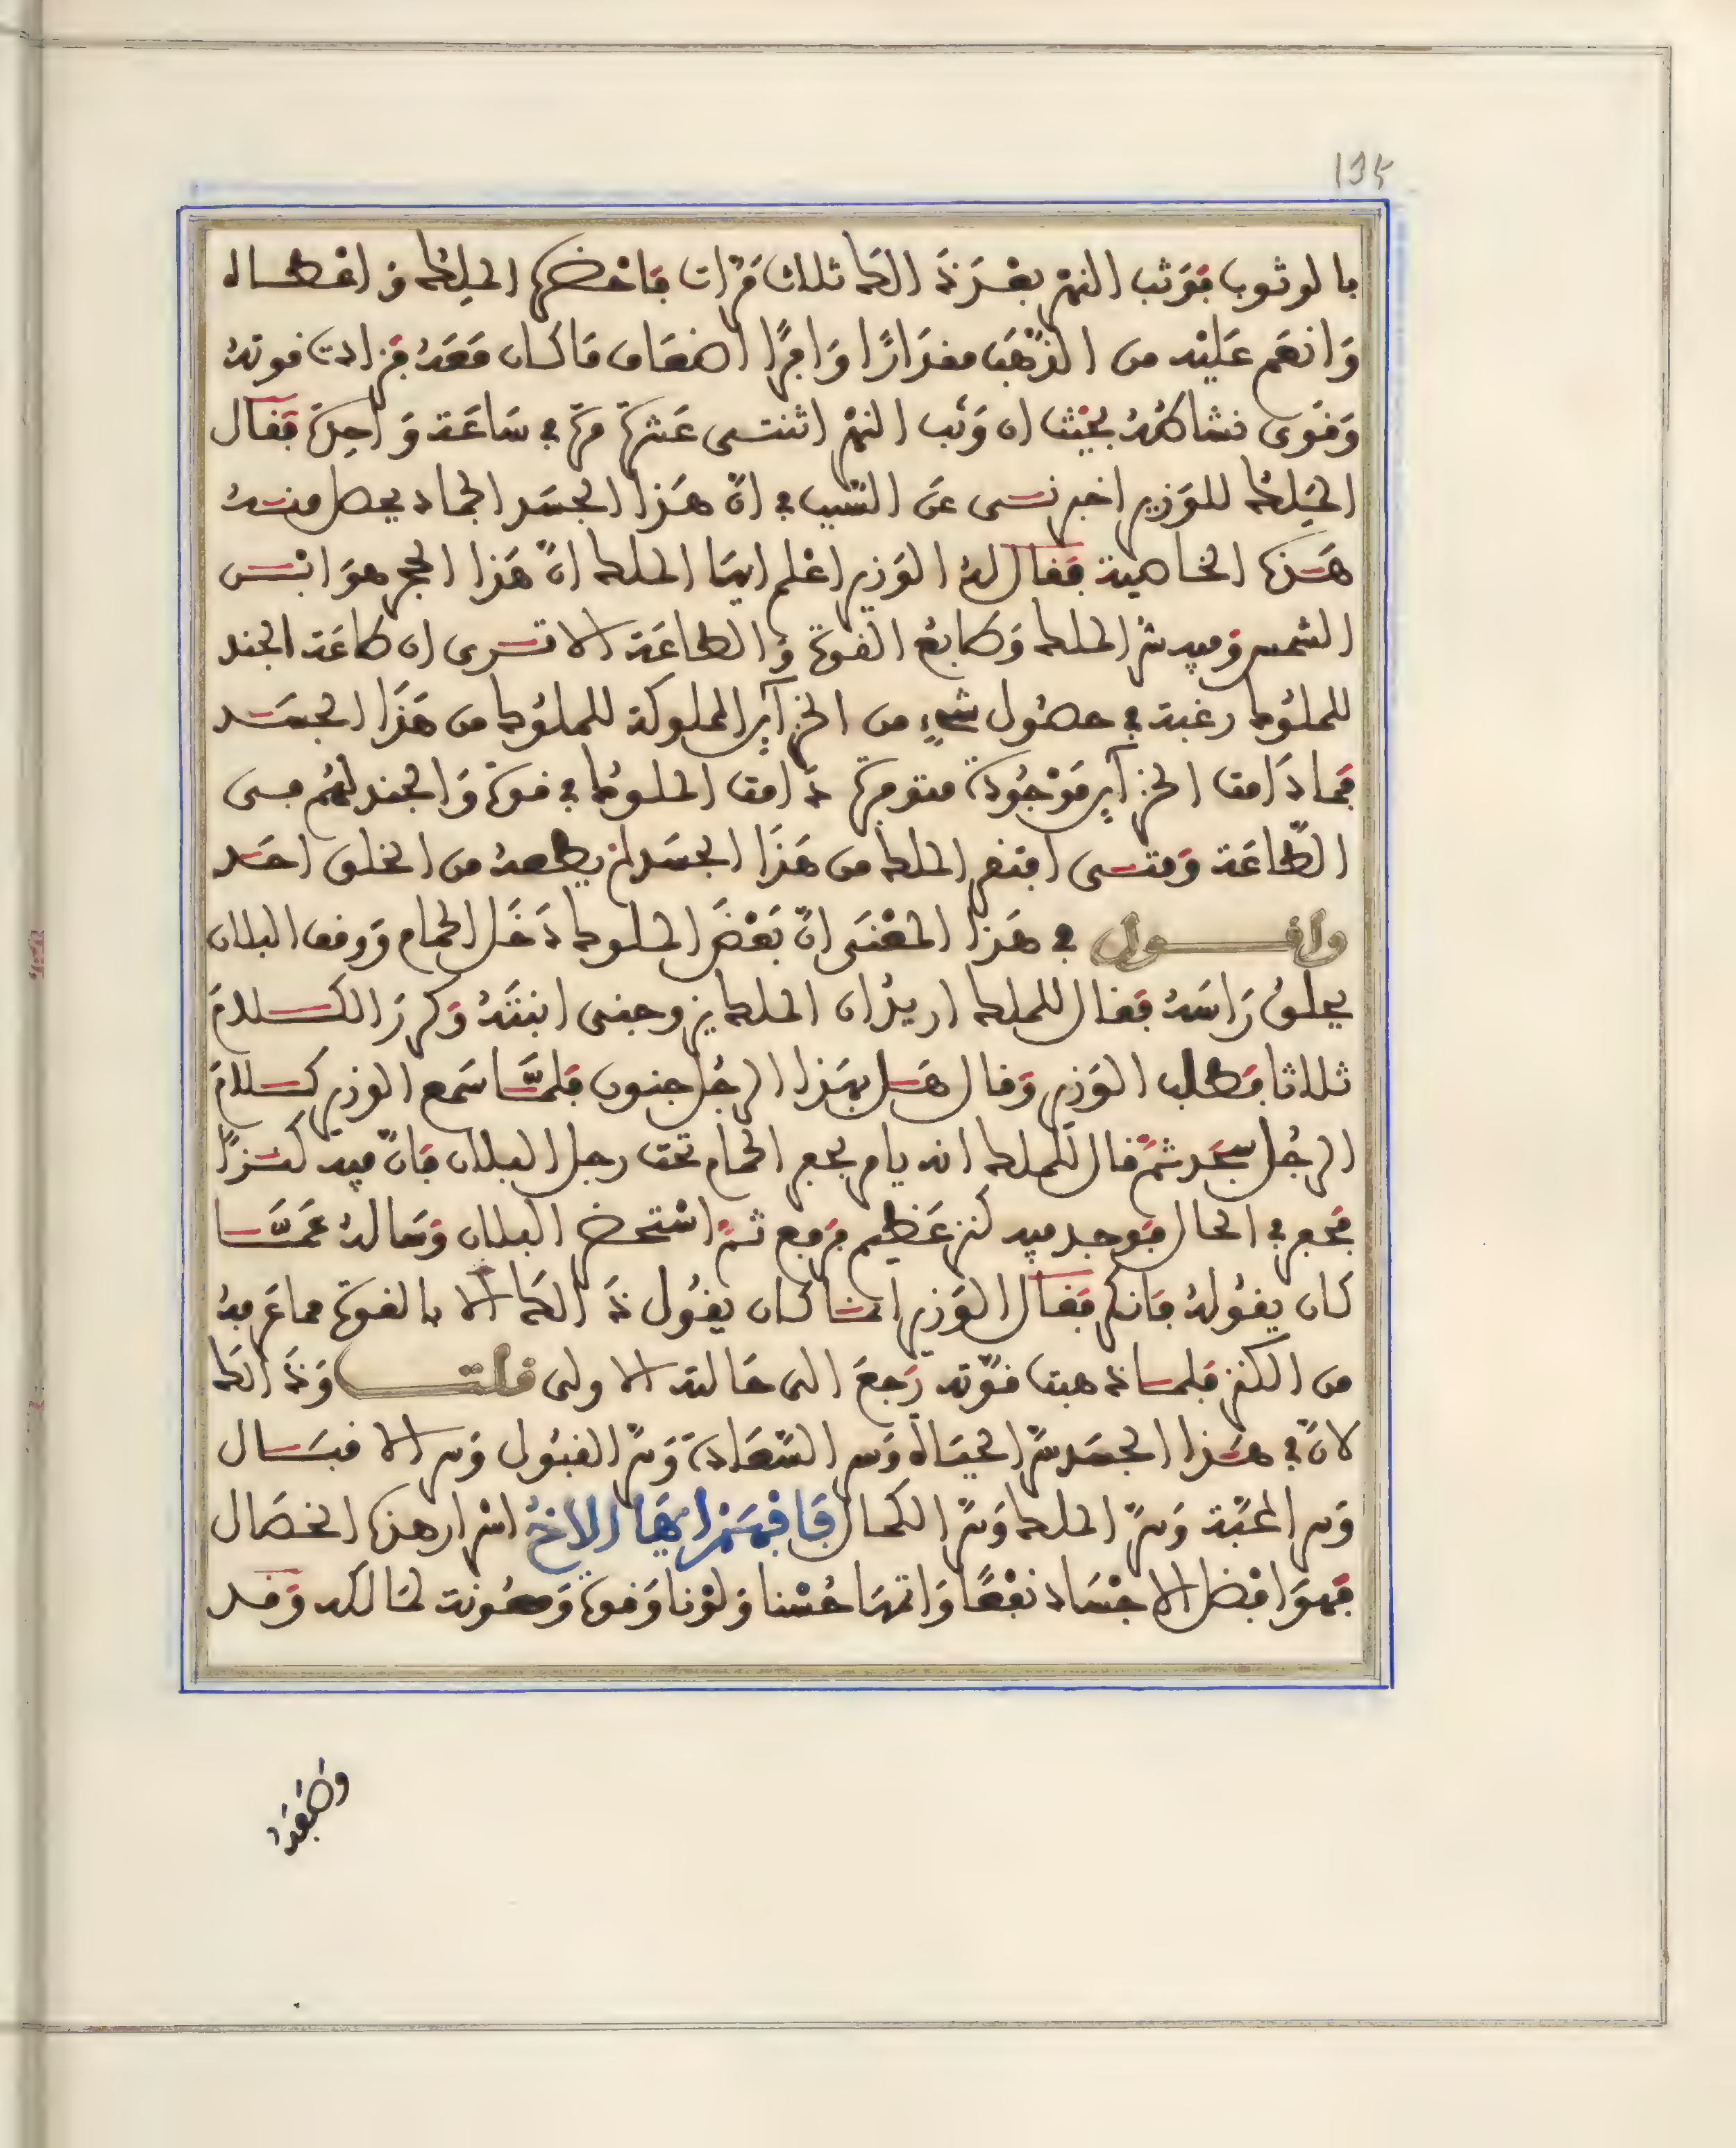 135
بالوثوب فوثب النهر بعد ذَالك ثلاث مَرّات فاحضره الملك وَاعطاه
وَانعم عَليْه من الذّهَب مقدَارًا وَافرًا اضعَاف مَا كان مَعَهُ فزادت قوته
وَقَوى نشاطهُ بحَيْث ان وَثب النهْر اثنتى عَشرَة مرّة في سَاعَة وَاحِدَة فقال
المَلِك للوَزير اخبرنى عَن السّبب في انّ هَذا الجسَد الجماد يحصل منهُ
هَذه الخاصية فقال لهُ الوَزير اعْلم ايهَا الملك انّ هَذا الحجر هوَ ابْن
الشمس وَفيه سرّ الملك وَطابعُ القوة وَالطاعَة الا ترى ان طاعَة الجند
للملوُك رغبة في حصُول شَيءٍ من الخزآين المملوكة للملوُك من هَذَا الجسَد
فمادَامت الخزآين مَوْجُودَة متوفرة دَامت الملوك في قوة وَالجند لهُم في
الطّاعَة وَمتى افتقر الملك من هَذَا الجسَد لم يطعهُ من الخلق احَد
واقول في هَذا المعْنَى انّ بَعْضَ الملوك دَخَل الحمام وَوقف البلان
يحلقُ رَاسَهُ فقال للملك اريدُ ان الملك يزوجنى ابنتَهُ وَكرر الكلامَ
ثلاثا فطلب الوَزير وَقال هَل بهَذا الرجُل جنون فلمّا سَمع الوزير كلامَ
الرجُل سجَد ثمّ قال للملك انه يامر بحفر الحمام تحت رجل البلان فانّ فيه كنزًا
فحفر في الحال فوَجد فيه كنز عَظيم فرفع ثمّ اسْتحضر البلان وَسَالهُ عَمّا
كان يقوُلهُ فانكر فقال الوَزير انما كان يقوُل ذَالك الا بالقوة مما عَرفهُ
من الكنز فلما ذهبت قوّته رَجعَ الى حَالته الاولى قلت وَذَالك
لانّ في هَذا الجسَد سرّ الحيَاة وَسر السّعَادَة وَسرّ القبُول وَسر الاقبَال
وَسر المحَبّة وَسرّ الملك وَسرّ الكمال فَافهَمْ ايّهَا الاخُ اسْرار هذه الخصَال
فهوَ افضل الاجْسَاد نفْعًا وَاتمهَا حُسْنا وَلوْنا وَقوة وَمعُونة لمَالكه وَقد
وَصَفهُ